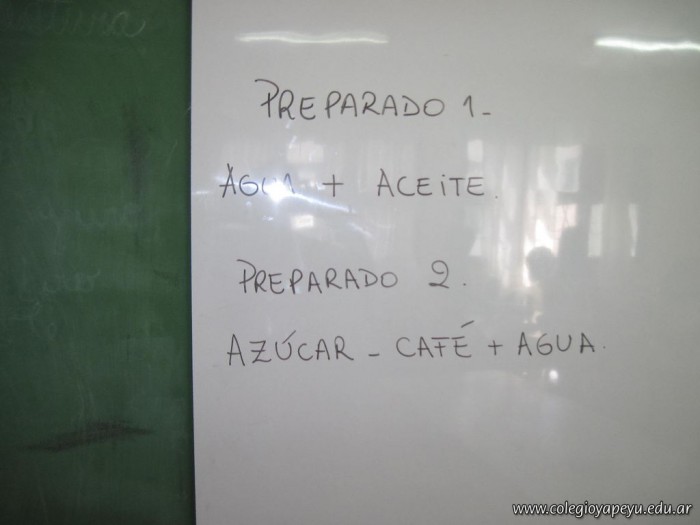 PREPARADO 1-
AGUA + ACEITE.
PREPARADO 2.
AZÚCAR - CAFÉ + AGUA.
www.colegioyapeyu.edu.ar